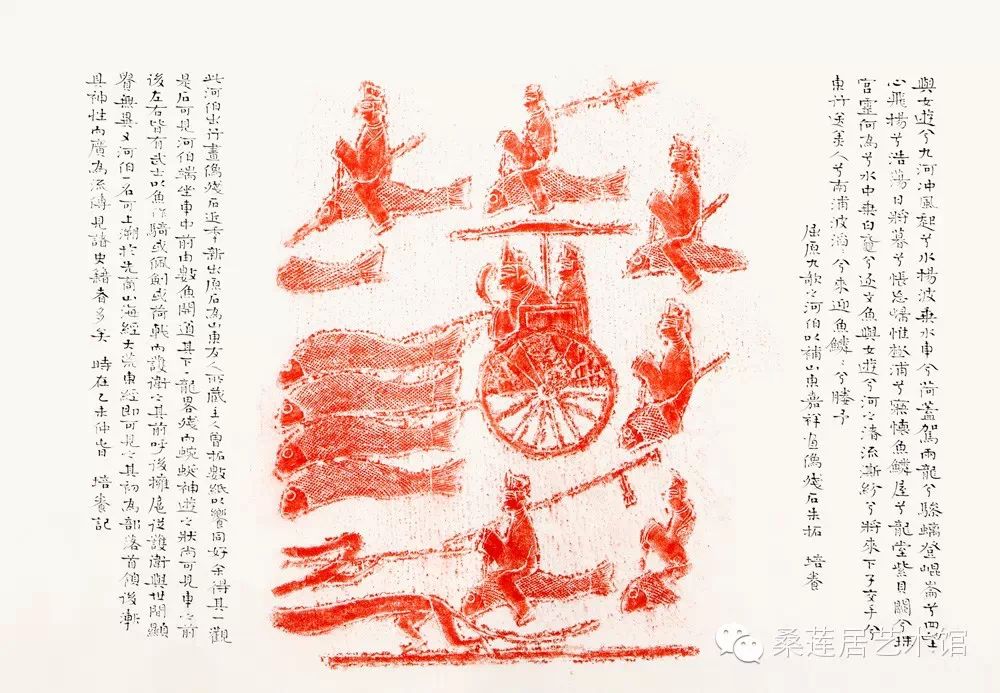 與女遊兮九河冲風起兮水揚波乘水車兮荷蓋駕兩龍兮驂螭登崐崙兮四望
心飛揚兮浩蕩日將暮兮悵忘歸惟極浦兮寤懷魚鱗屋兮龍堂紫貝闕兮珠
宮靈何為兮水中乘白黿兮逐文魚與女遊兮河之渚流澌紛兮將來下子交手兮
東行送美人兮南浦波滔〻兮來迎魚鱗〻兮媵予
屈原九歌之河伯以補山東嘉祥畫像殘石朱拓 培養
此河伯出行畫像殘石近年新出原石為山東方人所藏主人曾拓數紙以饗同好余得其一觀
是石可見河伯端坐車中前由數魚開道其下一龍畧殘而蜿蜒神遊之狀尚可見車之前
後左右皆有武士以魚作騎或佩劍或荷戟而護衛之其前呼後擁扈從護衛與世間顯
貴無異又河伯一名可上溯於先商山海經大荒東經即可見之其初為部落首領後漸
具神性而廣為流傳見諸史籍者多矣 時在乙未仲春 培養記
桑莲居艺术馆